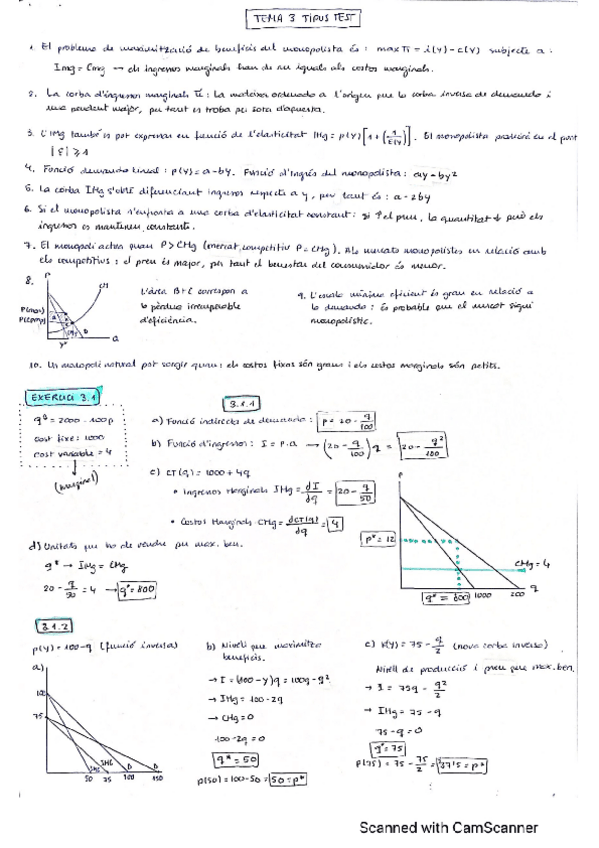 TEMA 3 TIPUS TEST
1. El problema de maximització de beneficis del monopolista és: max Π = i(y) - c(y) subjecte a:
Img = Cmg → els ingressos marginals han de ser iguals als costos marginals.
2. La corba d'ingressos marginals té: la mateixa ordenada a l'origen que la corba inversa de demanda i
una pendent major, per tant es troba per sota d'aquesta.
3. L'IMg també es pot expressar en funció de l'elasticitat IMg = p(y) [1 + (1/E(y))]. El monopolista produirà en el punt
|E| ≥ 1
4. Funció demanda lineal: p(y) = a - by. Funció d'ingrés del monopolista: ay - by²
5. La corba IMg s'obté diferenciant ingressos respecte a y, per tant és: a - 2by
6. Si el monopolista s'enfronta a una corba d'elasticitat constant: si ↑ el preu, la quantitat ↓ però els
ingressos es mantenen constants.
7. El monopoli actua quan P > CMg (mercat competitiu P = CMg). Als mercats monopolistes en relació amb
els competitius: el preu és major, per tant el benestar del consumidor és menor.
8.
P
CM
P(mon)
P(comp)
y*
D
Q
L'àrea B+C correspon a
la pèrdua irrecuperable
d'eficiència.
9. L'escala mínima eficient és gran en relació a
la demanda: és probable que el mercat sigui
monopolístic.
10. Un monopoli natural pot sorgir quan: els costos fixos són grans i els costos marginals són petits.
EXERCICI 3.1
q^D = 2000 - 100p
cost fixe: 1000
cost variable = 4
(marginal)
3.1.1
a) Funció indirecta de demanda: p = 20 - q/100
b) Funció d'ingressos: I = P·Q → (20 - q/100) q = 20 - q²/100
c) CT(q) = 1000 + 4q
• Ingressos Marginals IMg = dI/dq = 20 - q/50
• Costos Marginals CMg = dCT(q)/dq = 4
d) Unitats que ha de vendre per max. ben.
q* → IMg = CMg
20 - q/50 = 4 → q* = 800
P
P* = 12
CMg = 4
q
q* = 800
1000
200
3.1.2
p(y) = 100 - q (funció inversa)
a)
100
75
50
75
100
150
D
D
b) Nivell que maximitza
beneficis.
→ I = (100 - y)q = 100q - q²
→ IMg = 100 - 2q
→ CMg = 0
100 - 2q = 0
q* = 50
p(50) = 100 - 50 = 50 = p*
c) P(y) = 75 - q/2 (nova corba inversa)
Nivell de producció i preu per max. ben.
→ I = 75q - q²/2
→ IMg = 75 - q
75 - q = 0
q* = 75
P(75) = 75 - 75/2 = 37'5 = p*
Scanned with CamScanner